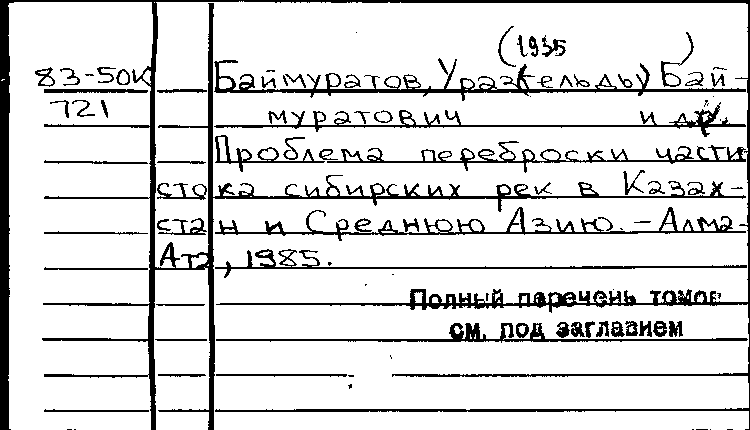 (1935 )
83-50К Баймуратов, Ураз(гельды) Бай-
721 муратович и др.
Проблема переброски части
стока сибирских рек в Казах-
стан и Среднюю Азию. – Алма-
Ата, 1985.
Полный перечень томов
см. под заглавием